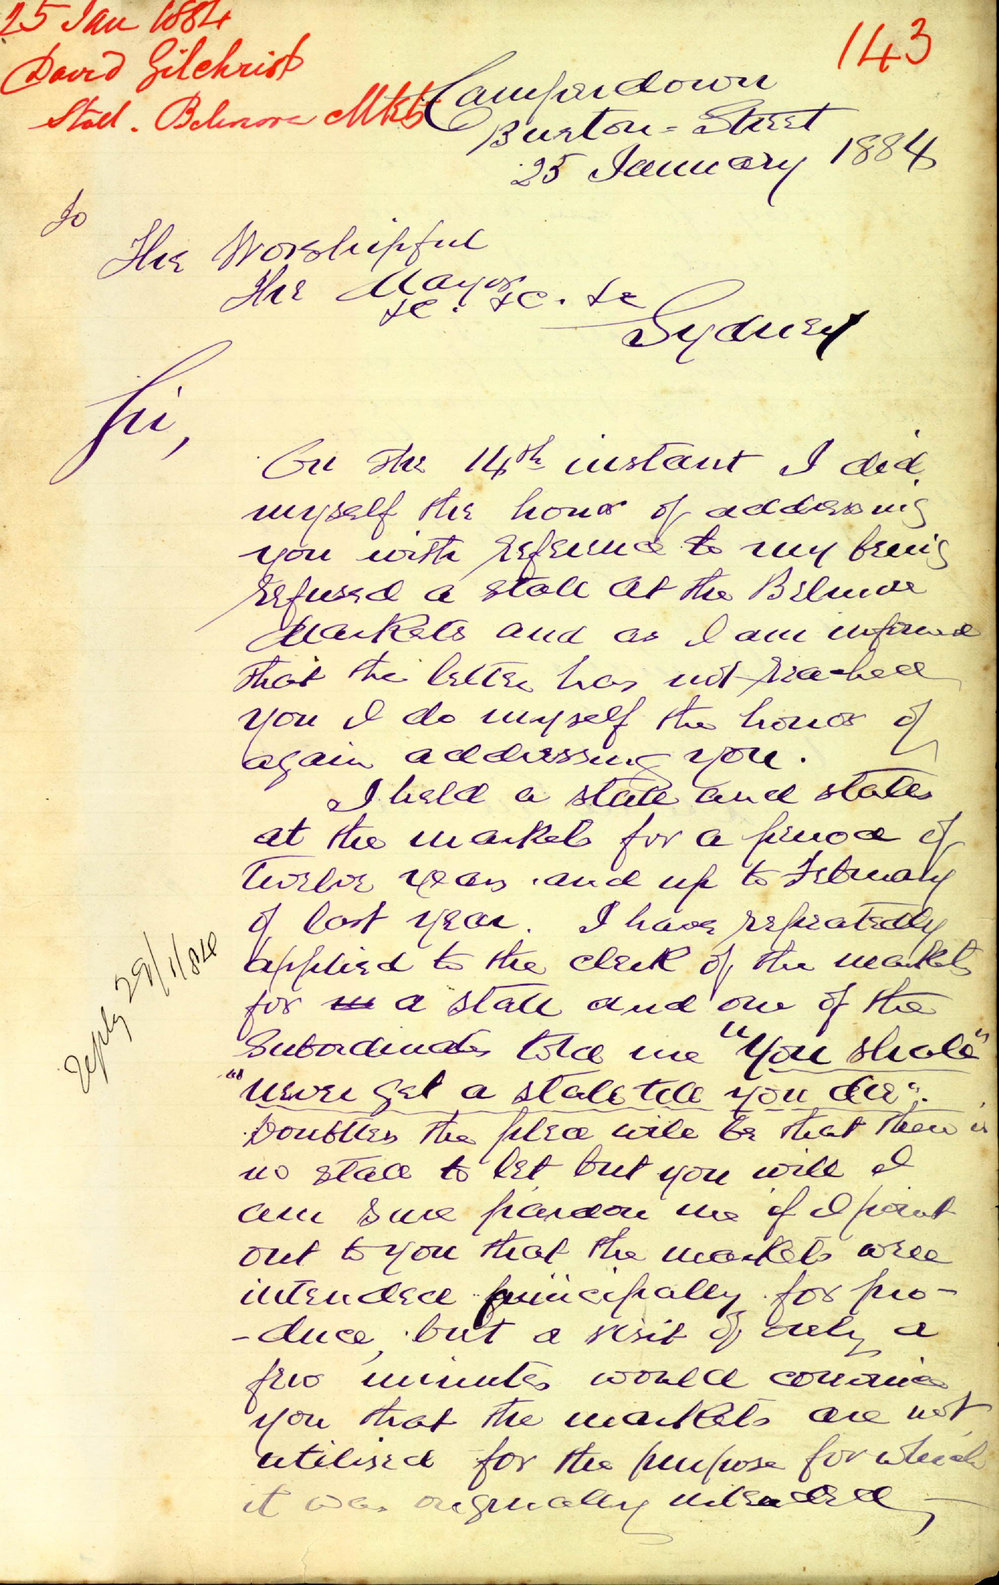 25 Jan 1884
David Gilchrist
Stall. Belmore Mkts
143
Camperdown
Burton = Street
25 January 1884
To
The Worshipful
The Mayor
&c. &c. &c
Sydney
Sir,
On the 14th instant I did
myself the honor of addressing
you with reference to my being
refused a stall at the Belmore
Markets and as I am informed
that the letter has not reached
you I do myself the honor of
again addressing you.
I held a stall and stalls
at the markets for a period of
Twelve years and up to February
of last year. I have repeatedly
applied to the clerk of the markets
for a stall and one of the
Subordinates told me "You shall"
"never get a stall till you die".
Doubtless the plea will be that there is
no stall to let but you will I
am sure pardon me if I point
out to you that the markets were
intended principally for pro-
-duce, but a visit of only a
few minutes would convince
you that the markets are not
utilised for the purpose for which
it was originally intended,
Reply 29/1/84